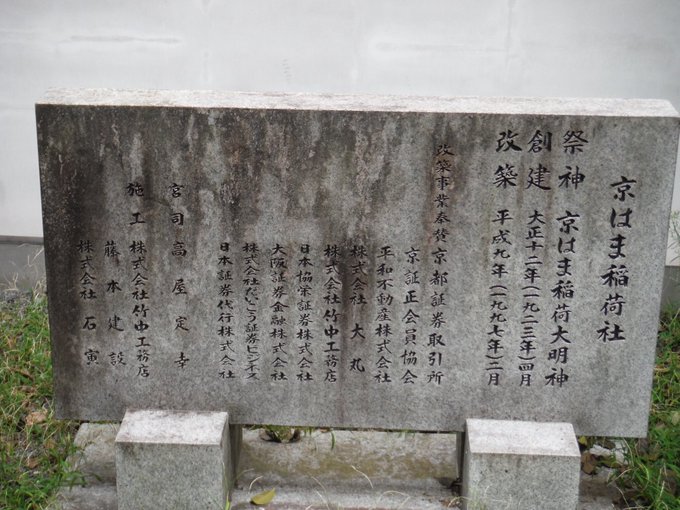 京はま稲荷社
祭神 京はま稲荷大明神
創建 大正十二年(一九二三年)四月
改築 平成九年(一九九七年)二月
改築事業奉賛 京都証券取引所
京証正会員協会
平和不動産株式会社
株式会社 大丸
株式会社竹中工務店
日本協栄証券株式会社
大阪証券金融株式会社
株式会社だいこう証券ビジネス
日本証券代行株式会社
宮司 高屋定幸
施工 株式会社竹中工務店
藤本建設
株式会社 石寅